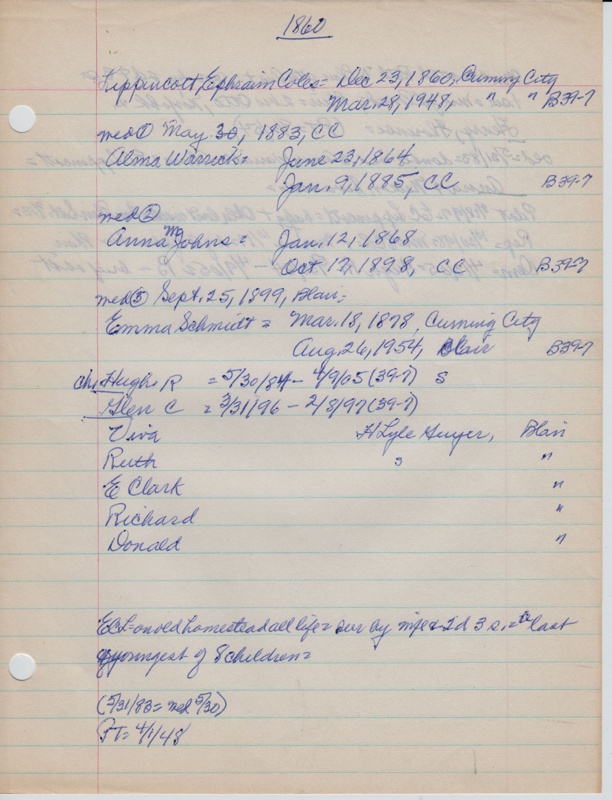 1860
Lippincott, Ephraim Coles = Dec 23, 1860, Cuming City
Mar. 28, 1948, " " B39-7
med ① May 30, 1883, CC
Alma Warrick = June 23, 1864
Jan. 9, 1885, CC B39-7
med ②
Anna M Johns = Jan. 12, 1868
Oct 17, 1898, CC B39-7
med ③ Sept. 25, 1899, Blair;
Emma Schmidt = Mar. 18, 1878, Cuming City
Aug. 26, 1954, Blair B39-7
ch: Hugh R = 5/30/84 - 4/9/05 (39-7) s
Glen C = 3/31/96 - 2/8/97 (39-7)
Viva H Lyle Guyer, Blair
Ruth s "
E Clark "
Richard "
Donald "
ECL = on old homestead all life = sur by wife & 2d 3 s. = last
youngest of 8 children =
(5/31/83 = med 5/30)
PT = 4/1/48